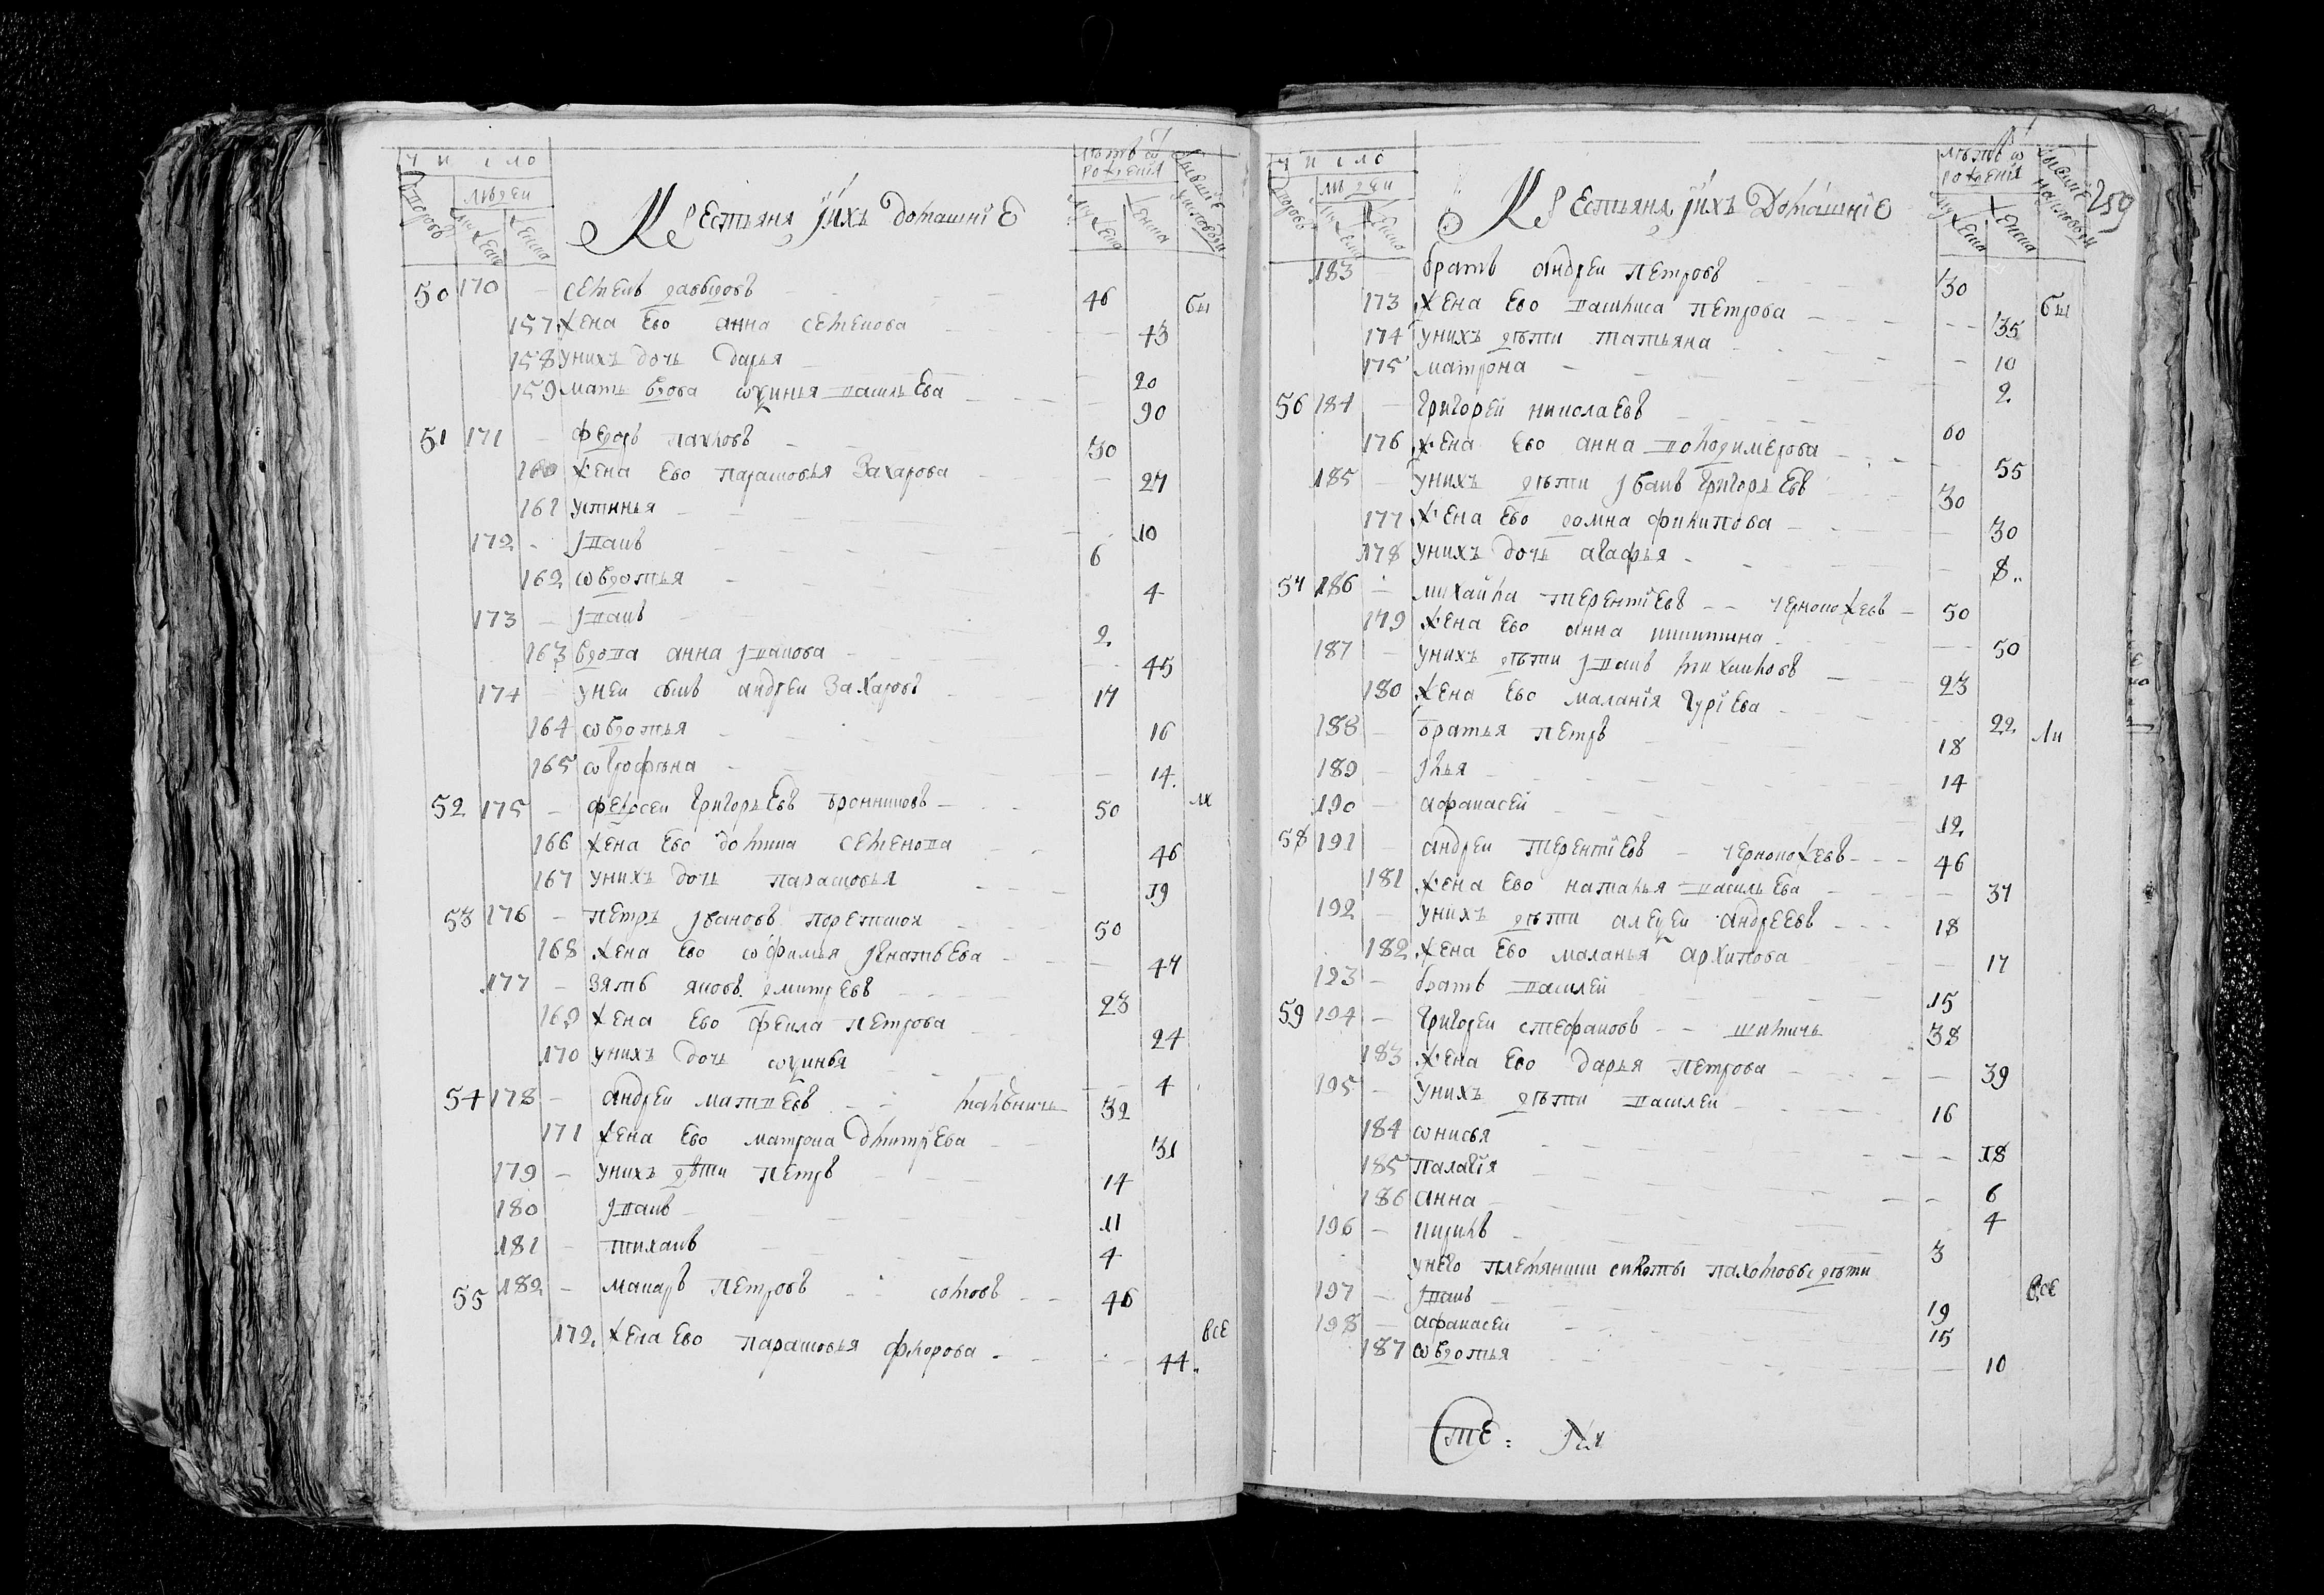 число
дворовъ
людеи
мужеска
женска
Крестьяня ихъ домашние
лѣтъ ѿ рождения
мужеска
женска
бывшие
50 170 — семенъ давыдовъ — 46 бы
157 жена ево анна семенова — 43
158 унихъ дочь дарья — 20
159 мать вдова ѡудинья василь ева — 90
51 171 — федоръ пахловъ — 30
160 жена ево парасковья захарова — 27
161 устинья — 10
172 — иванъ — 6
162 ѡвдотья — 4
173 — иванъ — 2
163 вдова анна иванова — 45
174 — унеи сынъ андреи захаровъ — 17
164 ѡвдотья — 16
165 ѡгрофѣна — 14
52 175 — федосеи григорь евъ бронниковъ — 50
166 жена ево домна семенова — 46
167 унихъ дочь парасковья — 19
53 176 — петръ ивановъ — 50
168 жена ево ѡфимья игнатьева — 47
177 — зять яковъ дмитревъ — 23
169 жена ево фекла петрова — 24
170 унихъ дочь — 4
54 178 — андреи матвеевъ — 32
171 жена ево матрона дмитрева — 31
179 — унихъ дѣти петръ — 14
180 иванъ — 11
181 — михаилъ — 4
55 182 — макаръ петровъ — сомовъ — 46
172 жена ево парасковья флорова — 44 все
259
число
дворовъ
людеи
мужеска
женска
Крестьяня ихъ Домашние
лѣтъ ѿ рождения
мужеска
женска
бывшие
183 — братъ андреи петровъ — 30
173 жена ево василиса петрова — 35 бы
174 унихъ дѣти татьяна — 10
175 матрона — 2
56 184 — григореи николаевъ — 60
176 жена ево анна володимерова — 55
185 — унихъ дѣти иванъ григорь евъ — 30
177 жена ево домна филипова — 30
178 унихъ дочь агафья — 8
57 186 — михайла терентиевъ — черноножевъ — 50
179 жена ево анна никитина — 50
187 — унихъ дѣти иванъ михаиловъ — 23
180 жена ево малания гуриева — 22
188 — братья петръ — 18 ли
189 — илья — 14
190 — афанасей — 12
58 191 — андреи терентиевъ — черноножевъ — 46
181 жена ево наталья василь ева — 37
192 — унихъ дѣти алеѯеи андреевъ — 18
182 жена ево маланья архипова — 17
193 — братъ василей — 15
59 194 — григореи стефановъ — 38
183 жена ево дарья петрова — 39
195 — унихъ дѣти василеи — 16
184 ѡнисья — 18
185 палагія — 6
186 анна — 4
196 — кирилъ — 3
унего племянники пахомовы дѣти
197 — иванъ — 19 все
198 — афанасеи — 15
187 ѡвдотья — 10